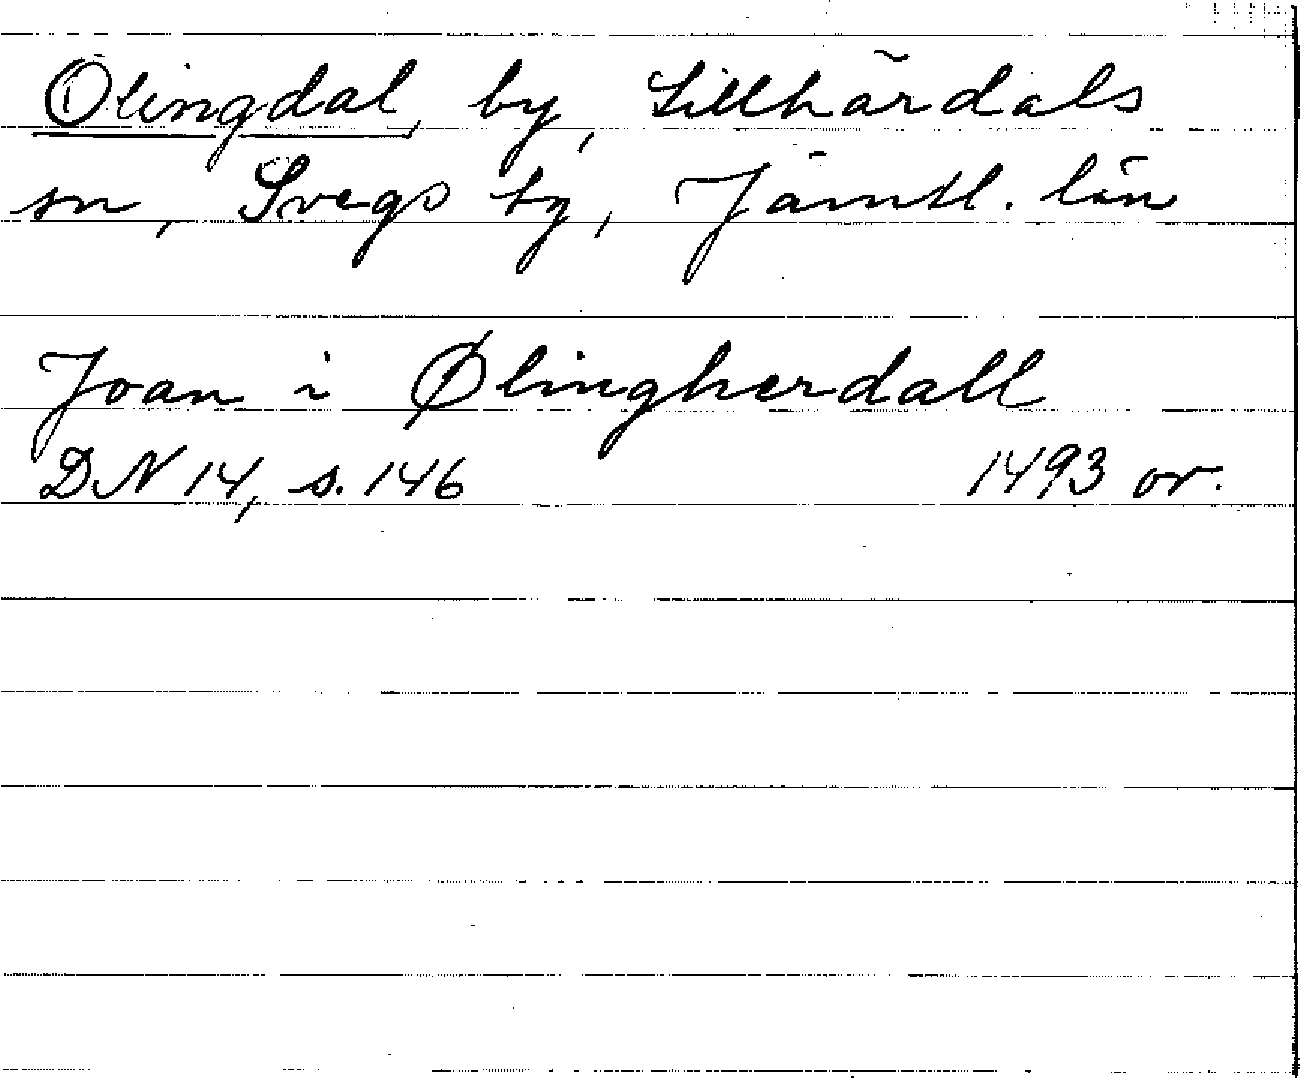 Ölingdal, by, Lillhärdals
sn, Svegs tg, Jämtl. län
Joan i Ølingherdall
DN 14, s. 146 1493 or.